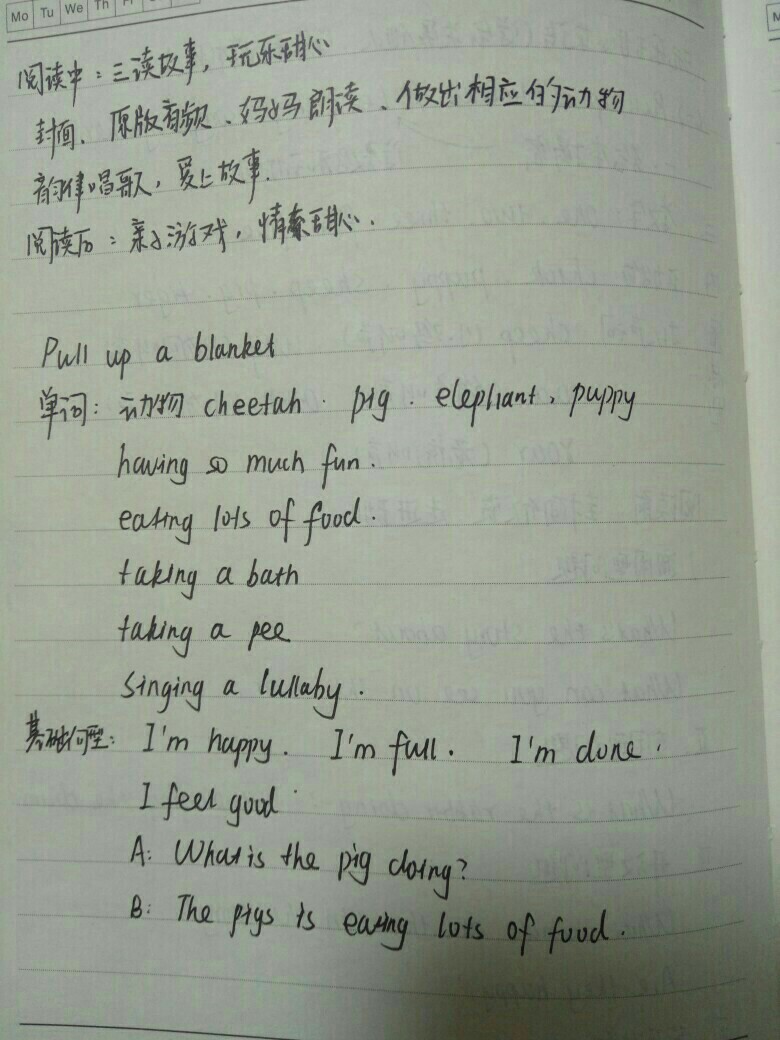 Mo Tu We Th Fr
阅读中：三读故事，玩乐甜心
封面、原版音频、妈妈朗读、做出相应的动物
韵律唱歌，爱上故事.
阅读后：亲子游戏，情素甜心.
Pull up a blanket
单词：动物 cheetah . pig . elephant , puppy
having so much fun .
eating lots of food .
taking a bath
taking a pee
singing a lullaby .
基础句型：I'm happy . I'm full . I'm done .
I feel good
A: What is the pig doing?
B: The pigs is eating lots of food .